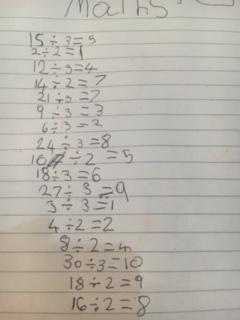 Maths
15÷3=5
2÷2=1
12÷3=4
14÷2=7
21÷3=7
9÷3=3
6÷3=2
24÷3=8
10÷2=5
18÷3=6
27÷3=9
3÷3=1
4÷2=2
8÷2=4
30÷3=10
18÷2=9
16÷2=8